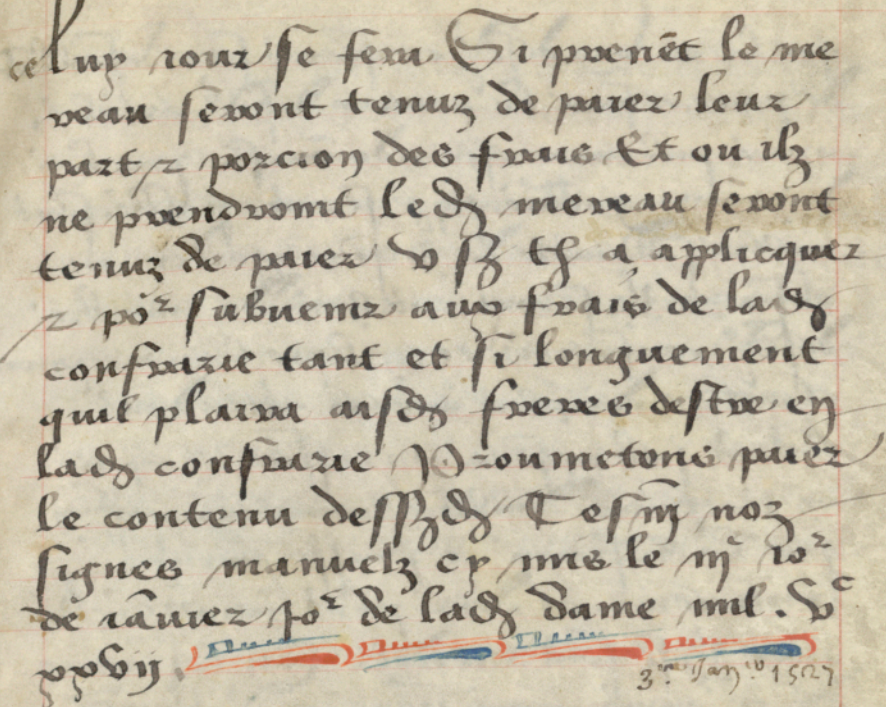 celuy iour se fera Si prenēt le me
reau seront tenuz de paier leur
part & porcion des frais Et ou ilz
ne prendront led mereau seront
tenuz de paier v sz tz a applicquer
& por subuenir aux frais de lad
confrarie tant et si longuement
quil plaira ausd freres destre en
lad confrarie Proumetons paier
le contenu dessusd Tesm noz
signes manuelz cy mis le iije ior
de iāuier ior de lad dame mil . vc
xxvij
3 Jan 1527